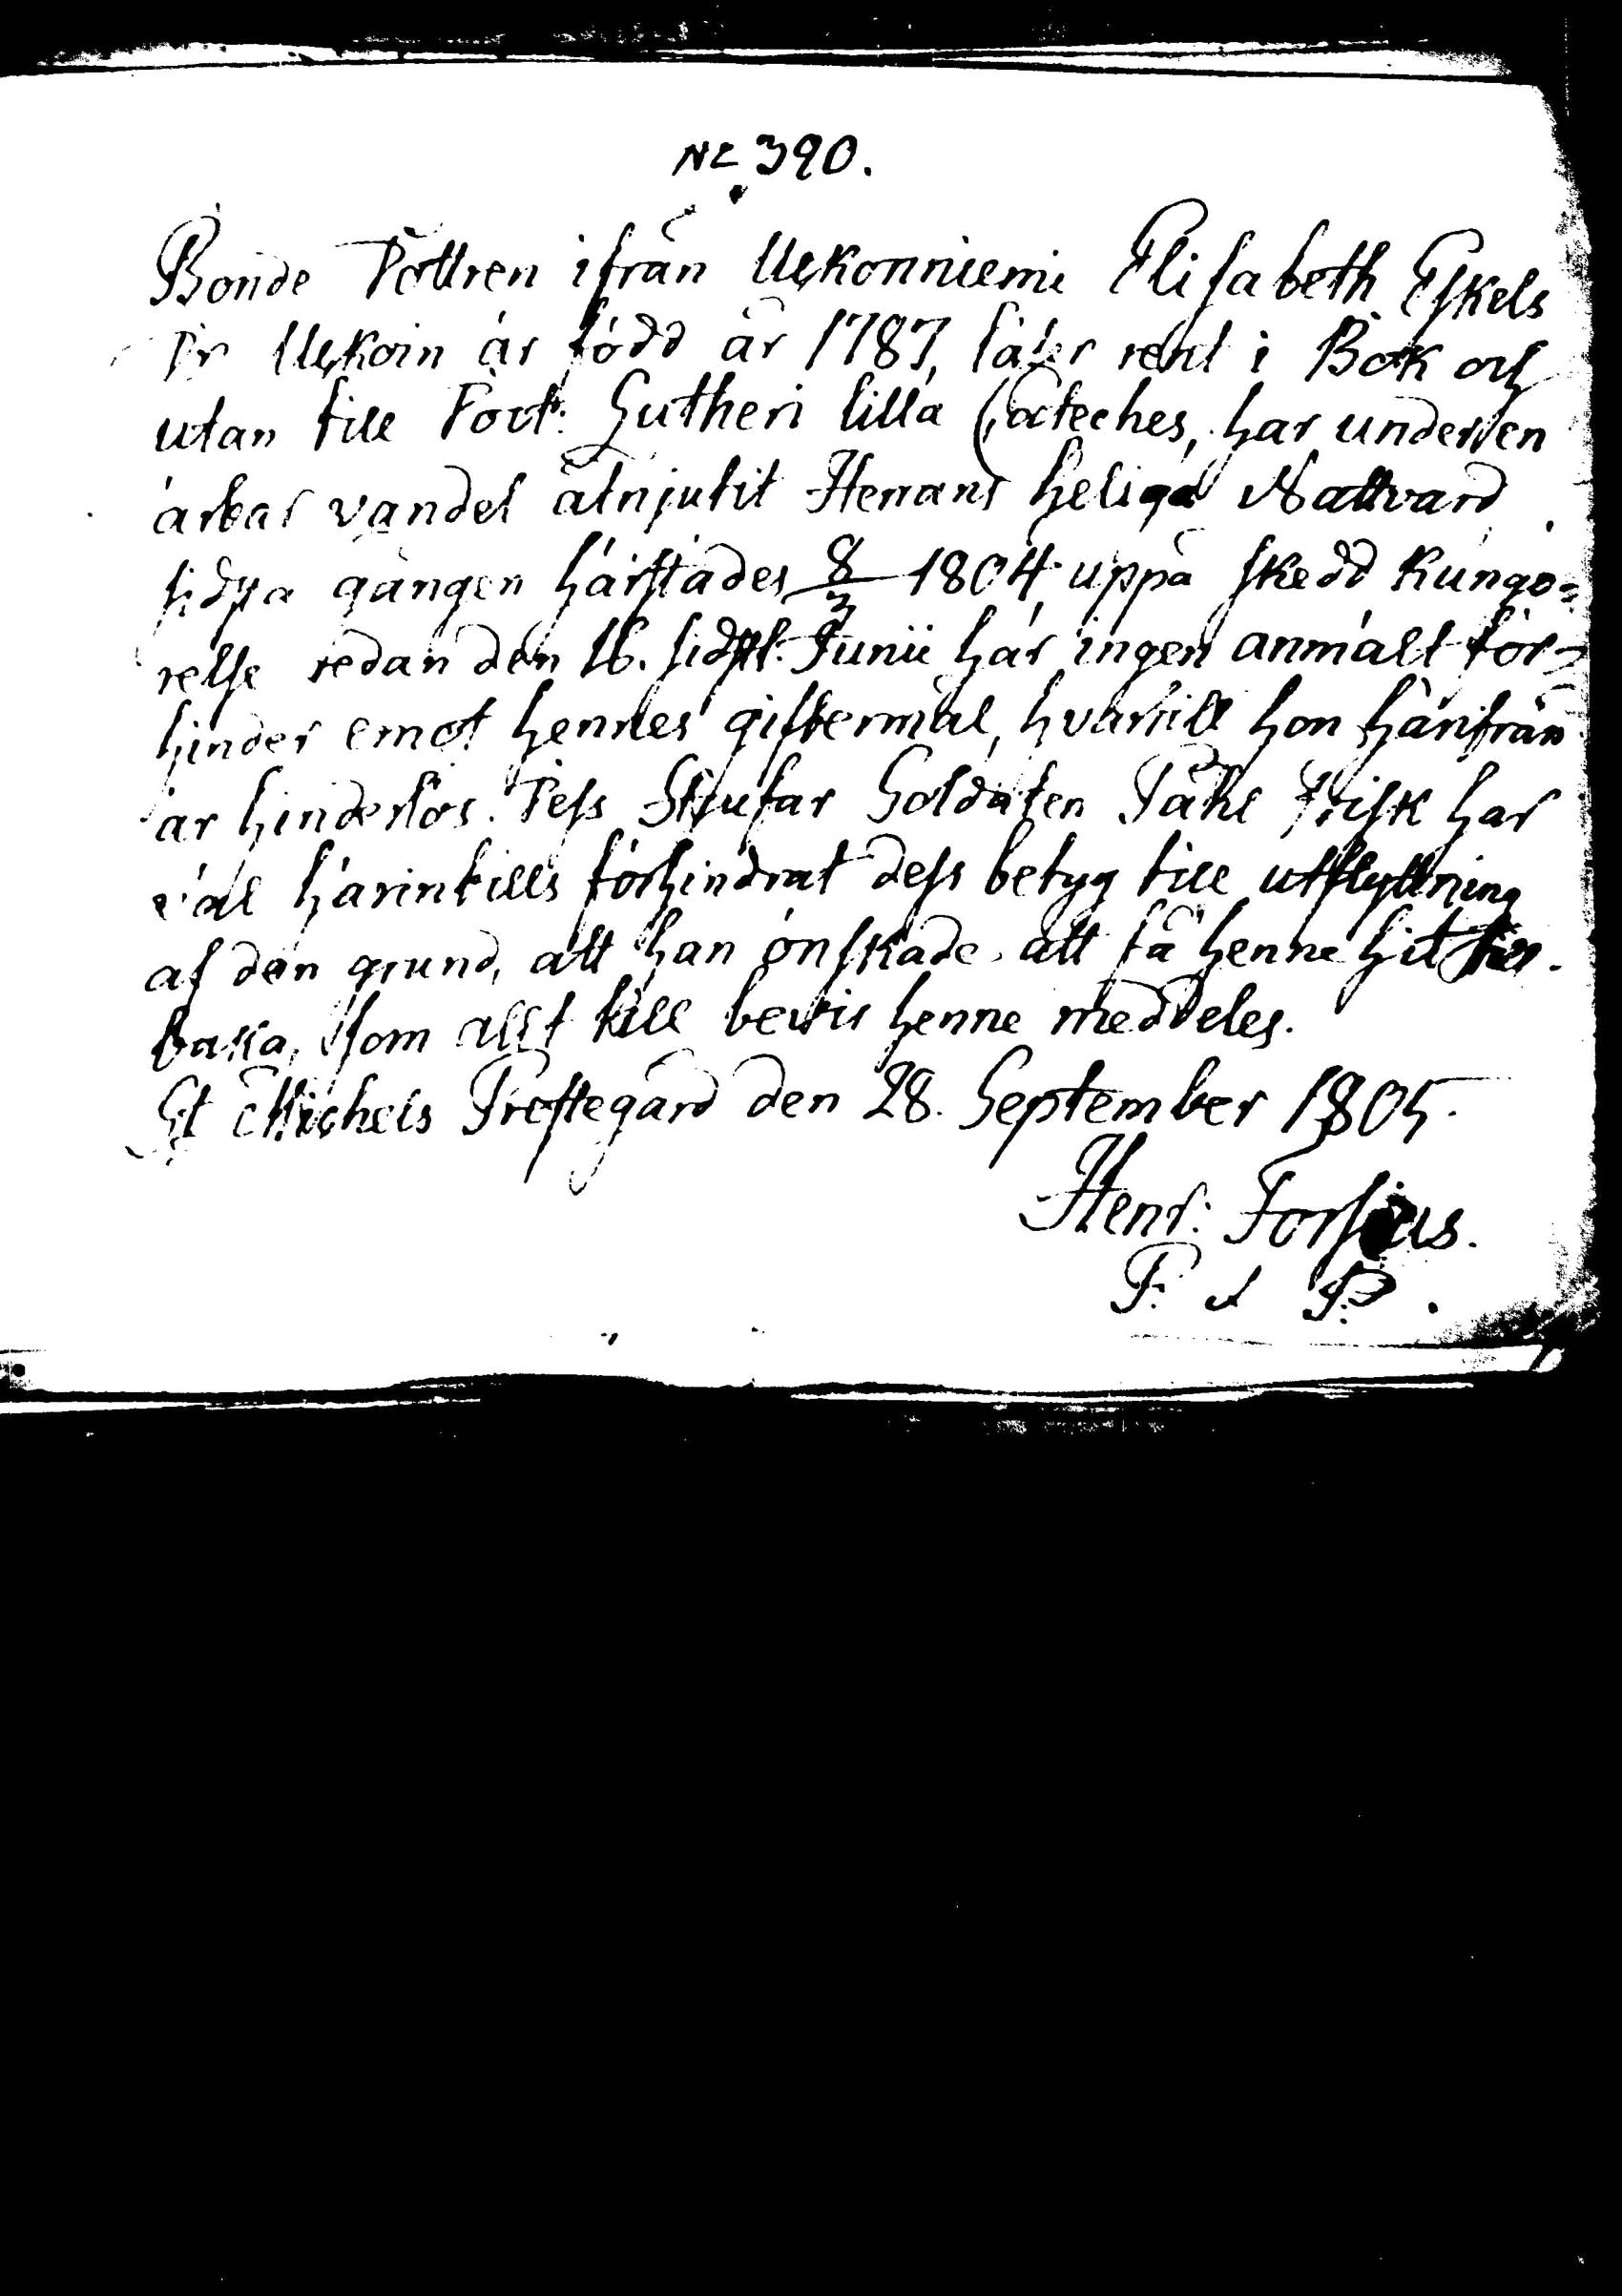 No 390.
Bonde Dottren ifrån Ukkonniemi Elisabeth Eskels
Dr Ukkoin är född år 1787, läser rent i Bok och
utan till Doct: Lutheri lilla Cateches, har under en
ärbar vandel åtnjutit Herrans heliga Nattvard
sidsta gången härstädes 8/3 1804, uppå skedd kungö=
relse redan den 16. sidstl: Junii har ingen anmält för=
hinder emot hennes giftermål, hvartill hon härifrån
är hinderlös. Dess Stjufar Soldaten Påhl Frisk har
väl härintills förhindrat dess betyg till utflyttning
af den grund, att han önskade att få henne hit till-
baka, som allt till bevis henne meddeles.
St Michels Prestegård den 28. September 1805.
Henr: Forsius.